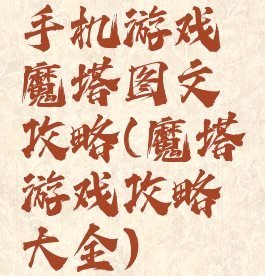 手机游戏
魔塔图文
攻略(魔塔
游戏攻略
大全)